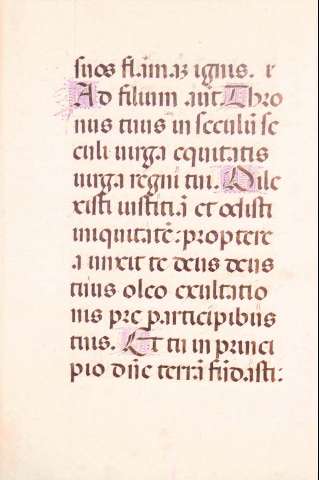 suos flāmaʒ ignis. r
Ad filium aūt. Thro
nus tuus in seculū se
culi uirga equitatis
uirga regni tui. Dile
xisti iustitiā et odisti
iniquitatē: proptere
a unxit te deus deus
tuus oleo exultatio
nis pre participibus
tuis. Et tu in princi
pio dn̄e terrā fūdasti: